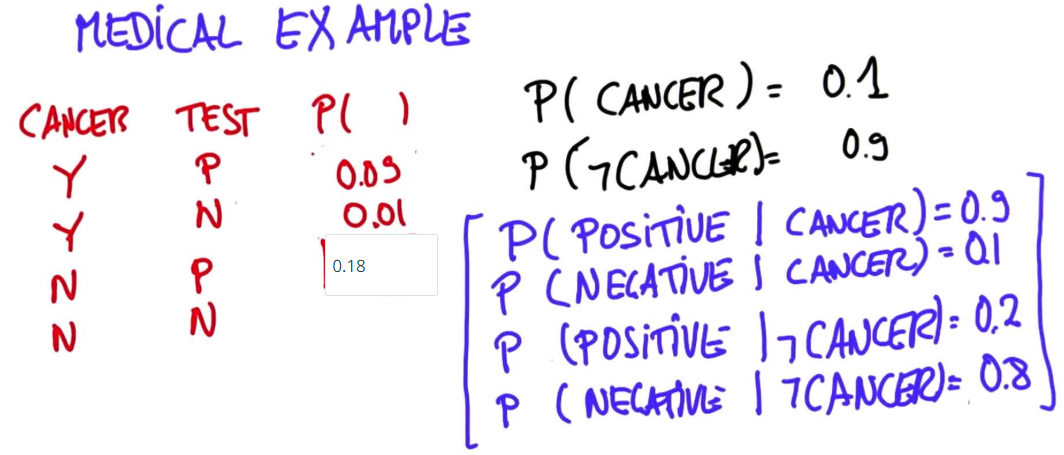 MEDICAL EXAMPLE
CANCER TEST P( )
Y P 0.09
Y N 0.01
N P 0.18
N N
P( CANCER ) = 0.1
P (¬CANCER)= 0.9
P( POSITIVE | CANCER) = 0.9
P (NEGATIVE | CANCER) = 0.1
P (POSITIVE | ¬CANCER) = 0.2
P (NEGATIVE | ¬CANCER) = 0.8